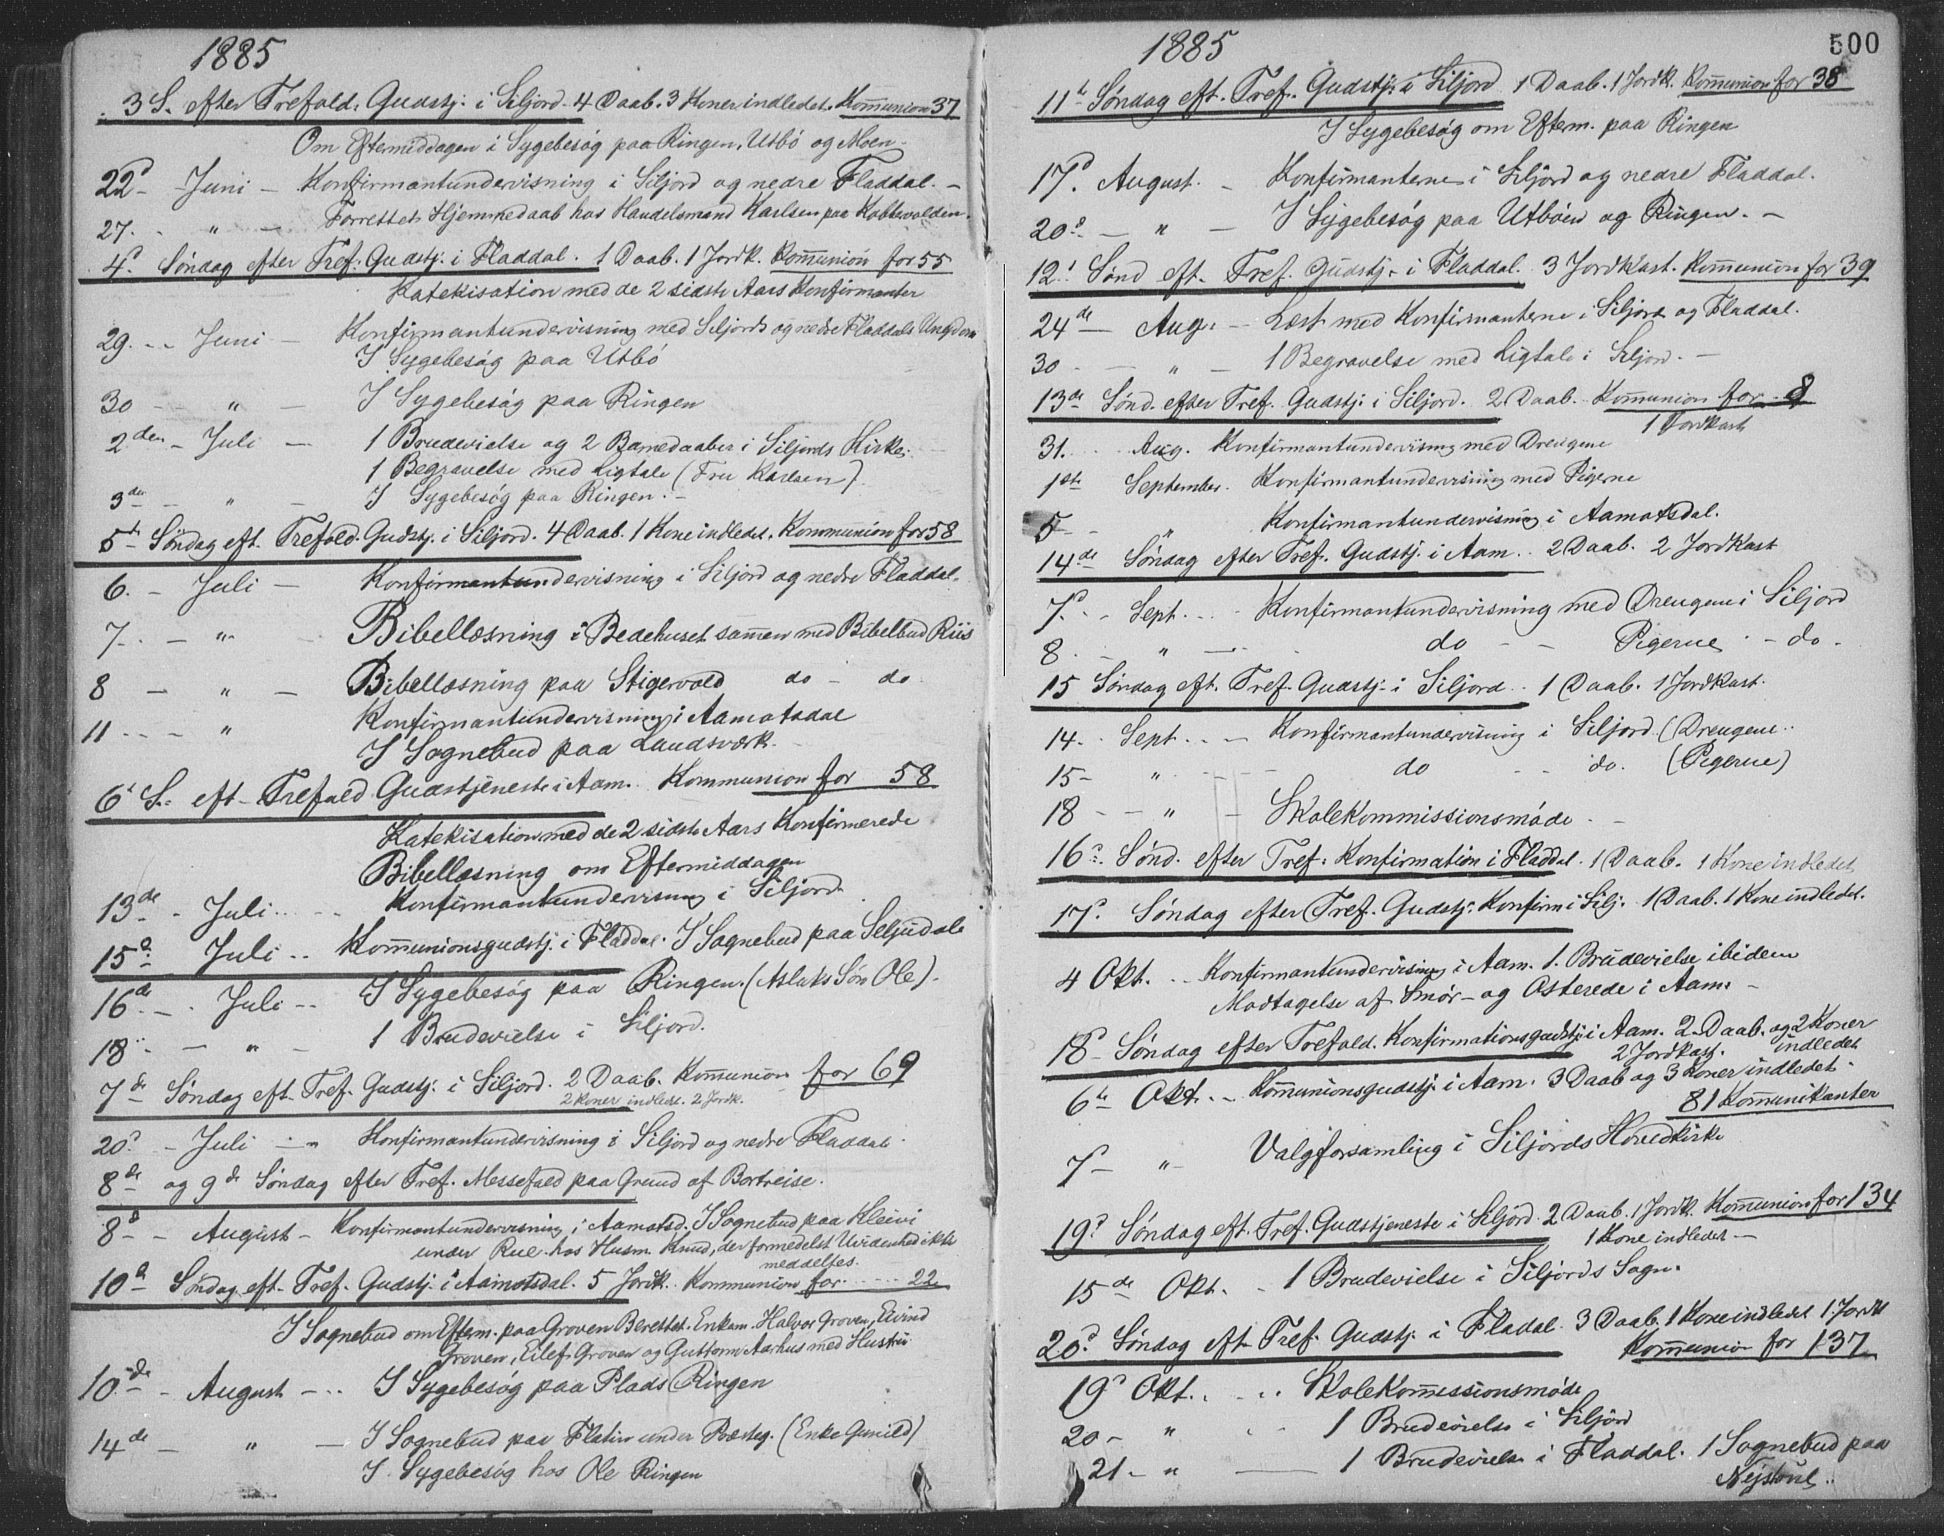 1885
3 S. efter Trefold. Gudstj. i Siljord. 4 Daab. 3 Koner indledet. Kommunion 37
Om Eftermiddagen i Sygebesøg paa Ringen, Utbö og Moen.
22d - Juni - Konfirmantundervisning i Siljord og nedre Fladdal. -
27. " - Forrettet Hjemmedaab hos Handelsmand Karlsen paa
4d. Søndag efter Tref. Gudstj. i Fladdal. 1 Daab. 1 Jordk. Kommunion for 55
Katekisation med de 2 sidste Aars Konfirmanter
29. - Juni - Konfirmantundervisning med Siljords og nedre Fladdals Ungdom
I Sygebesøg paa Utbö
30 - " - I Sygebesøg paa Ringen
2den - Juli - 1 Brudevielse og 2 Barnedaaber i Siljords Kirke.
1 Begravelse med Ligtale (Fru Karlsen)
3de - " - I Sygebesøg paa Ringen. -
5t Søndag eft. Trefold. Gudstj. i Siljord. 4 Daab. 1 Kone indledet. Kommunion for 58
6. - Juli - Konfirmantundervisning i Siljord og nedre Fladdal.
7. - " Bibellæsning i Bedehuset sammen med Bibelbud Riis
8 - " - Bibellæsning paa Stigervold do - do
11 - - " Konfirmantundervisning i Aamotsdal
I Sognebud paa Landsværk.
6t S. eft. Trefold Gudstjeneste i Aam. Kommunion for 58
Katekisation med de 2 sidste Aars Konfirmerede
Bibellæsning om Eftermiddagen
13de - Juli - Konfirmantundervisning i Siljord.
15d - Juli - Kommunionsgudstj. i Fladdal. I Sognebud paa Seljudale
16de - Juli - I Sygebesøg paa Ringen. (Aslaks Søn Ole).
18 - " - 1 Brudevielse i Siljord.
7de Søndag eft. Tref. Gudstj. i Siljord. 2 Daab. Kommunion for 69
2 Koner indlede. 2 Jordk.
20d - Juli - Konfirmantundervisning i Siljord og nedre Fladdal.
8de og 9de Søndag efter Tref. Messefald paa Grund af Bortreise.
8d - August - Konfirmantundervisning i Aamotsd. I Sognebud paa Kleivi
under Rue hos Husm. Knud, der formedelst Uvidenhed ikke
meddeltes.
10d Søndag eft. Tref. Gudstj. i Aamotsdal. 5 Jordk. Kommunion for 22
I Sognebud om Efterm. paa Groven Berettet. Enkem. Halvor Groven, Eivind
Groven, Eilef Groven og Guttorm Aarhus med Hustru
10de - August - I Sygebesøg paa Plads Ringen
14de - " - I Sognebud paa Flatin under Præsteg. (Enke Gunild)
I Sygebesøg hos Ole Ringen
1885
500
11t Søndag eft. Tref. Gudstj. i Siljord 1 Daab. 1 Jordk. Kommunion for 38
I Sygebesøg om Efterm. paa Ringen
17d. August. - Konfirmanterne i Siljord og nedre Fladdal.
20d. - " - I Sygebesøg paa Utböen og Ringen. -
12t Sønd eft. Tref. Gudstj. i Fladdal. 3 Jordkast. Kommunion for 39
24de - Aug. - Læst med Konfirmanterne i Siljord og Fladdal.
30 - " - 1 Begravelse med Ligtale i Siljord. -
13de Sønd. efter Tref. Gudstj. i Siljord. 2 Daab. Kommunion for 8
1 Jordkast
31. Aug. Konfirmantundervisning med Drengene
1ste September. Konfirmantundervisning med Pigerne
5 - " Konfirmantundervisning i Aamotsdal.
14de Søndag efter Tref. Gudstj. i Aam. 2 Daab. 2 Jordkast
7d. - Sept. - Konfirmantundervisning med Drengene i Siljord
8. - " - do - Pigerne - do -
15 Søndag eft. Tref. Gudstj. i Siljord. 1 Daab. 1 Jordkast.
14. Sept. - Konfirmantundervisning i Siljord (Drengene.
15 - " - do - do. (Pigerne)
18 - " - Skolekommissionsmøde. -
16d. Sønd. efter Tref. Konfirmation i Fladdal. 1 Daab. 1 Kone indledet
17d. Søndag efter Tref. Gudstj. Konfirm i Silj. 1 Daab. 1 Kone indledet.
4 Okt. - Konfirmantundervisning i Aam. 1. Brudevielse ibidem
Modtagelse af Smør- og Osterede i Aam. -
18d - Søndag efter Trefold. Konfirmationsgudstj. i Aam. 2 Daab. og 2 Koner
2 Jordkast. indledet
6te Okt. - Kommunionsgudstj. i Aam. 3 Daab og 3 Koner indledet.
81 Kommunikanter
7 - " - Valgforsamling i Siljords Hovedkirke
19d Søndag eft. Tref. Gudstjeneste i Siljord. 2 Daab. 1 Jordk. Kommunion for 134
1 Kone indledet -
15de Okt. - 1 Brudevielse i Siljords Sogn.
20d Søndag eft Tref. Gudstj. i Fladdal. 3 Daab. 1 Kone indledet 1 Jordk
Kommunion for 137
19d Okt. - Skolekomissionsmøde
20 - " - 1 Brudevielse i Siljord
21 - " - 1 Brudevielse i Fladdal. 1 Sognebud paa
Nejstöul.